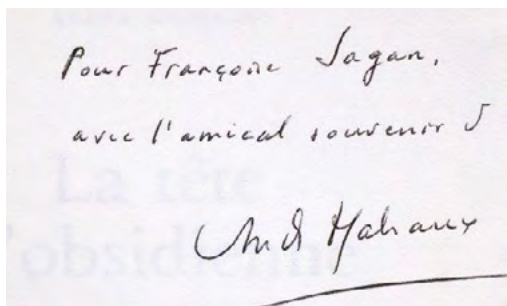 Pour Françoise Sagan,
avec l'amical souvenir d
André Malraux
La tête
l'obsidienne